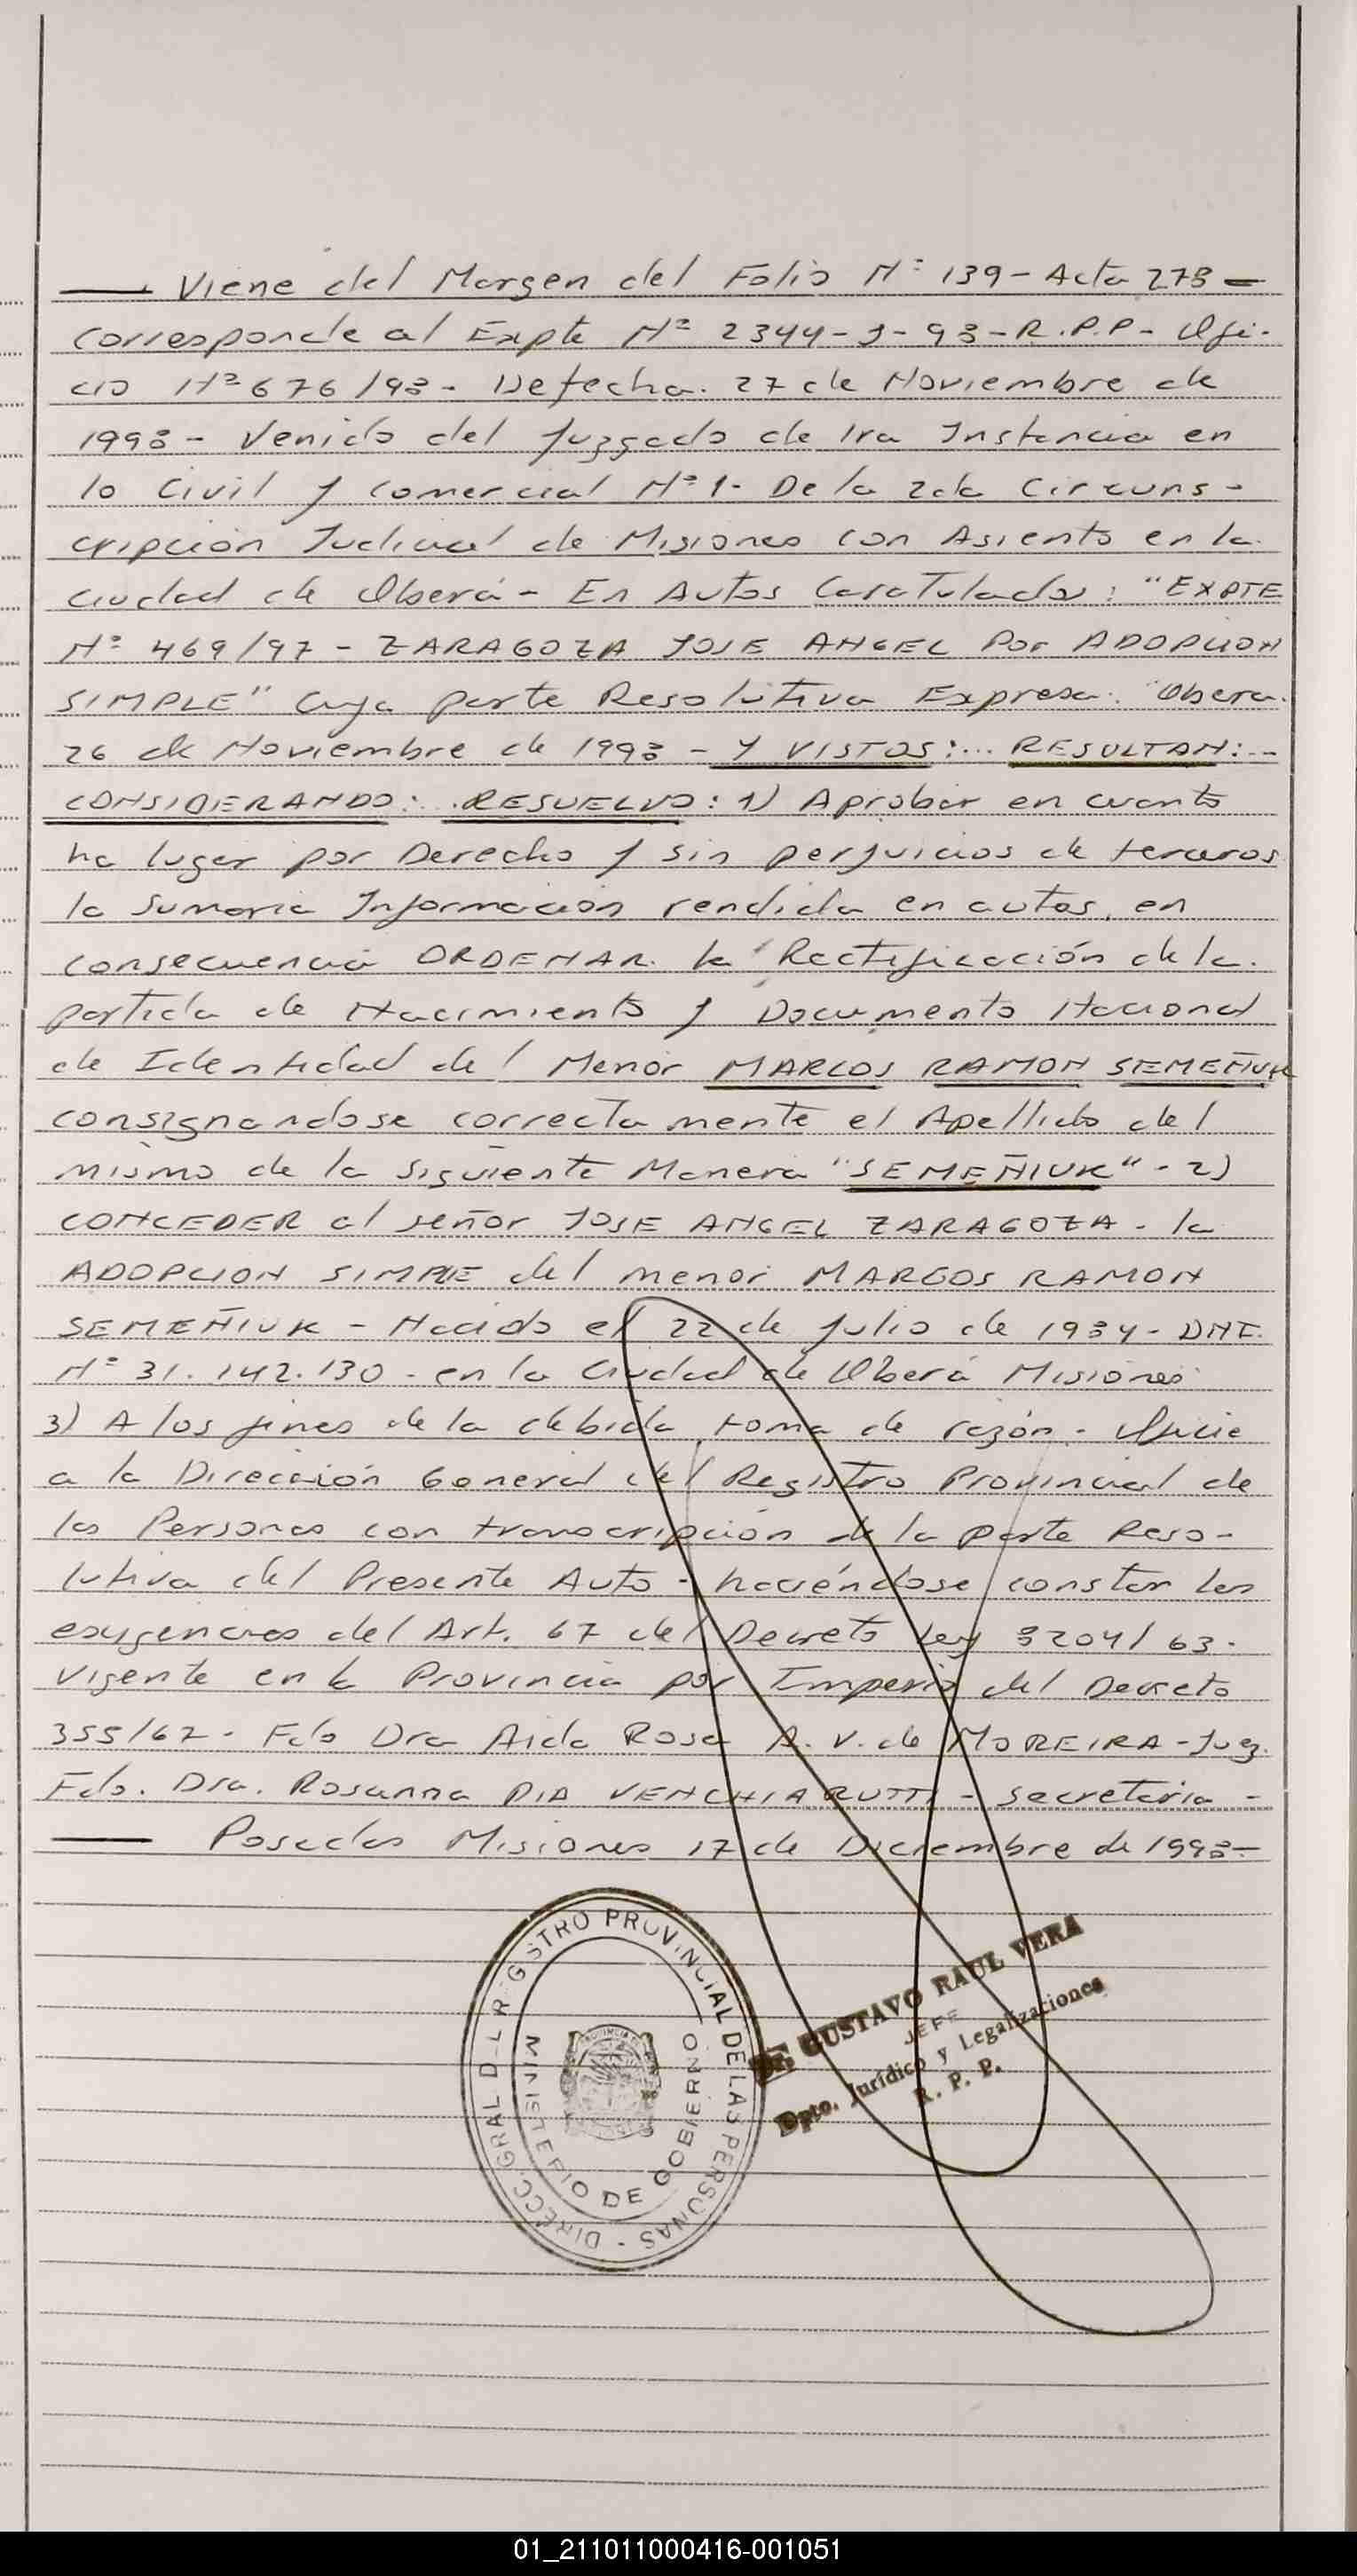 Viene del Margen del Folio Nº 139 - Acta 278 -
corresponde al Expte Nº 2344-J-98-R.P.P- Ofi-
cio Nº 676/98- De fecha. 27 de Noviembre de
1998 - Venido del Juzgado de 1ra Instancia en
lo Civil y Comercial Nº 1- De la 2da Circuns-
cripción Judicial de Misiones con Asiento en la
ciudad de Oberá - En Autos Caratulados: "EXPTE
Nº 469/97 - ZARAGOZA JOSE ANGEL Por ADOPCION
SIMPLE" Cuya parte Resolutiva Expresa: "Obera.
26 de Noviembre de 1998 - Y VISTOS:... RESULTAN:...
CONSIDERANDO:... RESUELVO: 1) Aprobar en cuanto
ha lugar por Derecho y sin perjuicios de terceros
la Sumaria Información rendida en autos, en
consecuencia ORDENAR. la Rectificación de la
partida de Nacimiento y Documento Nacional
de Identidad del Menor MARCOS RAMON SEMEÑUK
consignandose correctamente el Apellido del
mismo de la Siguiente Manera "SEMEÑIUK" - 2)
CONCEDER al señor JOSE ANGEL ZARAGOZA - la
ADOPCION SIMPLE del menor MARCOS RAMON
SEMEÑIUK - Nacido el 22 de Julio de 1984 - DNI.
Nº 31.142.130 - en la Ciudad de Oberá Misiones
3) A los fines de la debida toma de razón - Oficie
a la Dirección General del Registro Provincial de
las Personas con transcripción de la parte Reso-
lutiva del Presente Auto - haciéndose constar las
exigencias del Art. 67 del Decreto Ley 8204/63.
vigente en la Provincia por Imperio del Decreto
355/67- Fdo Dra Aida Rosa A. V. de MOREIRA - Juez.
Fdo. Dra. Rosanna PIA VENCHIARUTTI - Secretaria -
Posadas Misiones 17 de Diciembre de 1998-
DIRECC. GRAL DEL REGISTRO PROVINCIAL DE LAS PERSONAS
MINISTERIO DE GOBIERNO
Dr. GUSTAVO RAUL VERA
JEFE
Dpto. Jurídico y Legalizaciones
R. P. P.
01_211011000416-001051